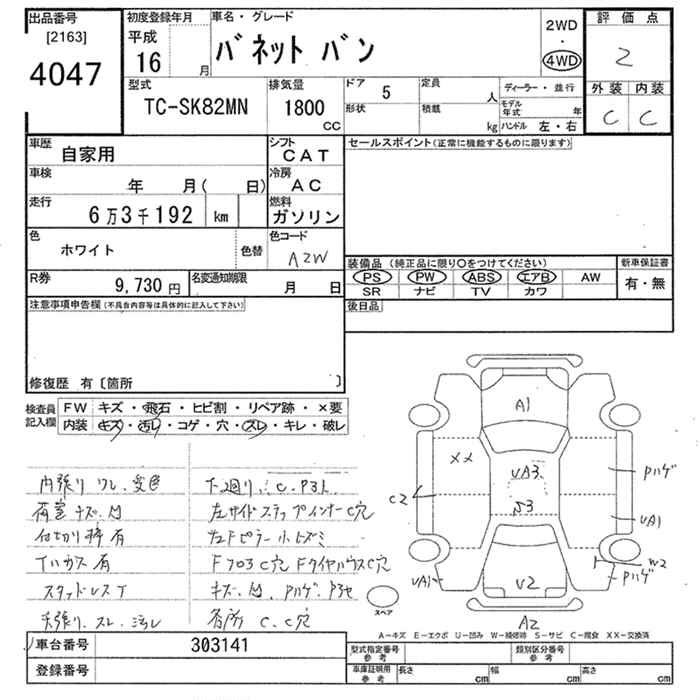 出品番号
[2163]
4047
初度登録年月
平成
16 月
車名・グレード
バネット バン
2WD
・
4WD
評価点
2
外装 内装
C C
型式
TC-SK82MN
排気量
1800
CC
ドア 5
形状
定員 人
積載 kg
ディーラー・並行
モデル年式 年
ハンドル 左・右
車歴
自家用
シフト
CAT
車検
年 月( 日)
冷房
AC
走行
6万3千192 km
燃料
ガソリン
色
ホワイト
色替
色コード
A2W
R券
9,730円
名変通知期限
月 日
セールスポイント(正常に機能するものに限ります)
装備品 (純正品に限り○をつけてください)
PS PW ABS エアB AW
SR ナビ TV カワ
新車保証書
有・無
後日品
注意事項申告欄(不具合内容等は具体的に記入して下さい)
修復歴 有〔箇所 〕
検査員
記入欄
FW キズ・飛石・ヒビ割・リペア跡・×要
内装 キズ・汚レ・コゲ・穴・スレ・キレ・破レ
内張り ワレ、変色
荷室 キズ、凹
仕切り棒 有
Tハガス 有
スタッドレスT
天張り、スレ、汚レ
下廻り、C、P3L
左サイドステップインナーC穴
左Fピラー小ヒズミ
FフロアC穴 FタイヤハウスC穴
キズ、凹、Pハゲ、
各所 C、C穴
A1
XX
UA3
S3
C2
Pハゲ
UA1
W2
Pハゲ
UA1
U2
A2
スペア
A−キズ E−エクボ U−凹み W−補修跡 S−サビ C−腐食 XX−交換済
車台番号 303141
登録番号
型式指定番号
参考
類別区分番号
参考
車庫証明用
参考
長さ cm
幅 cm
高さ cm